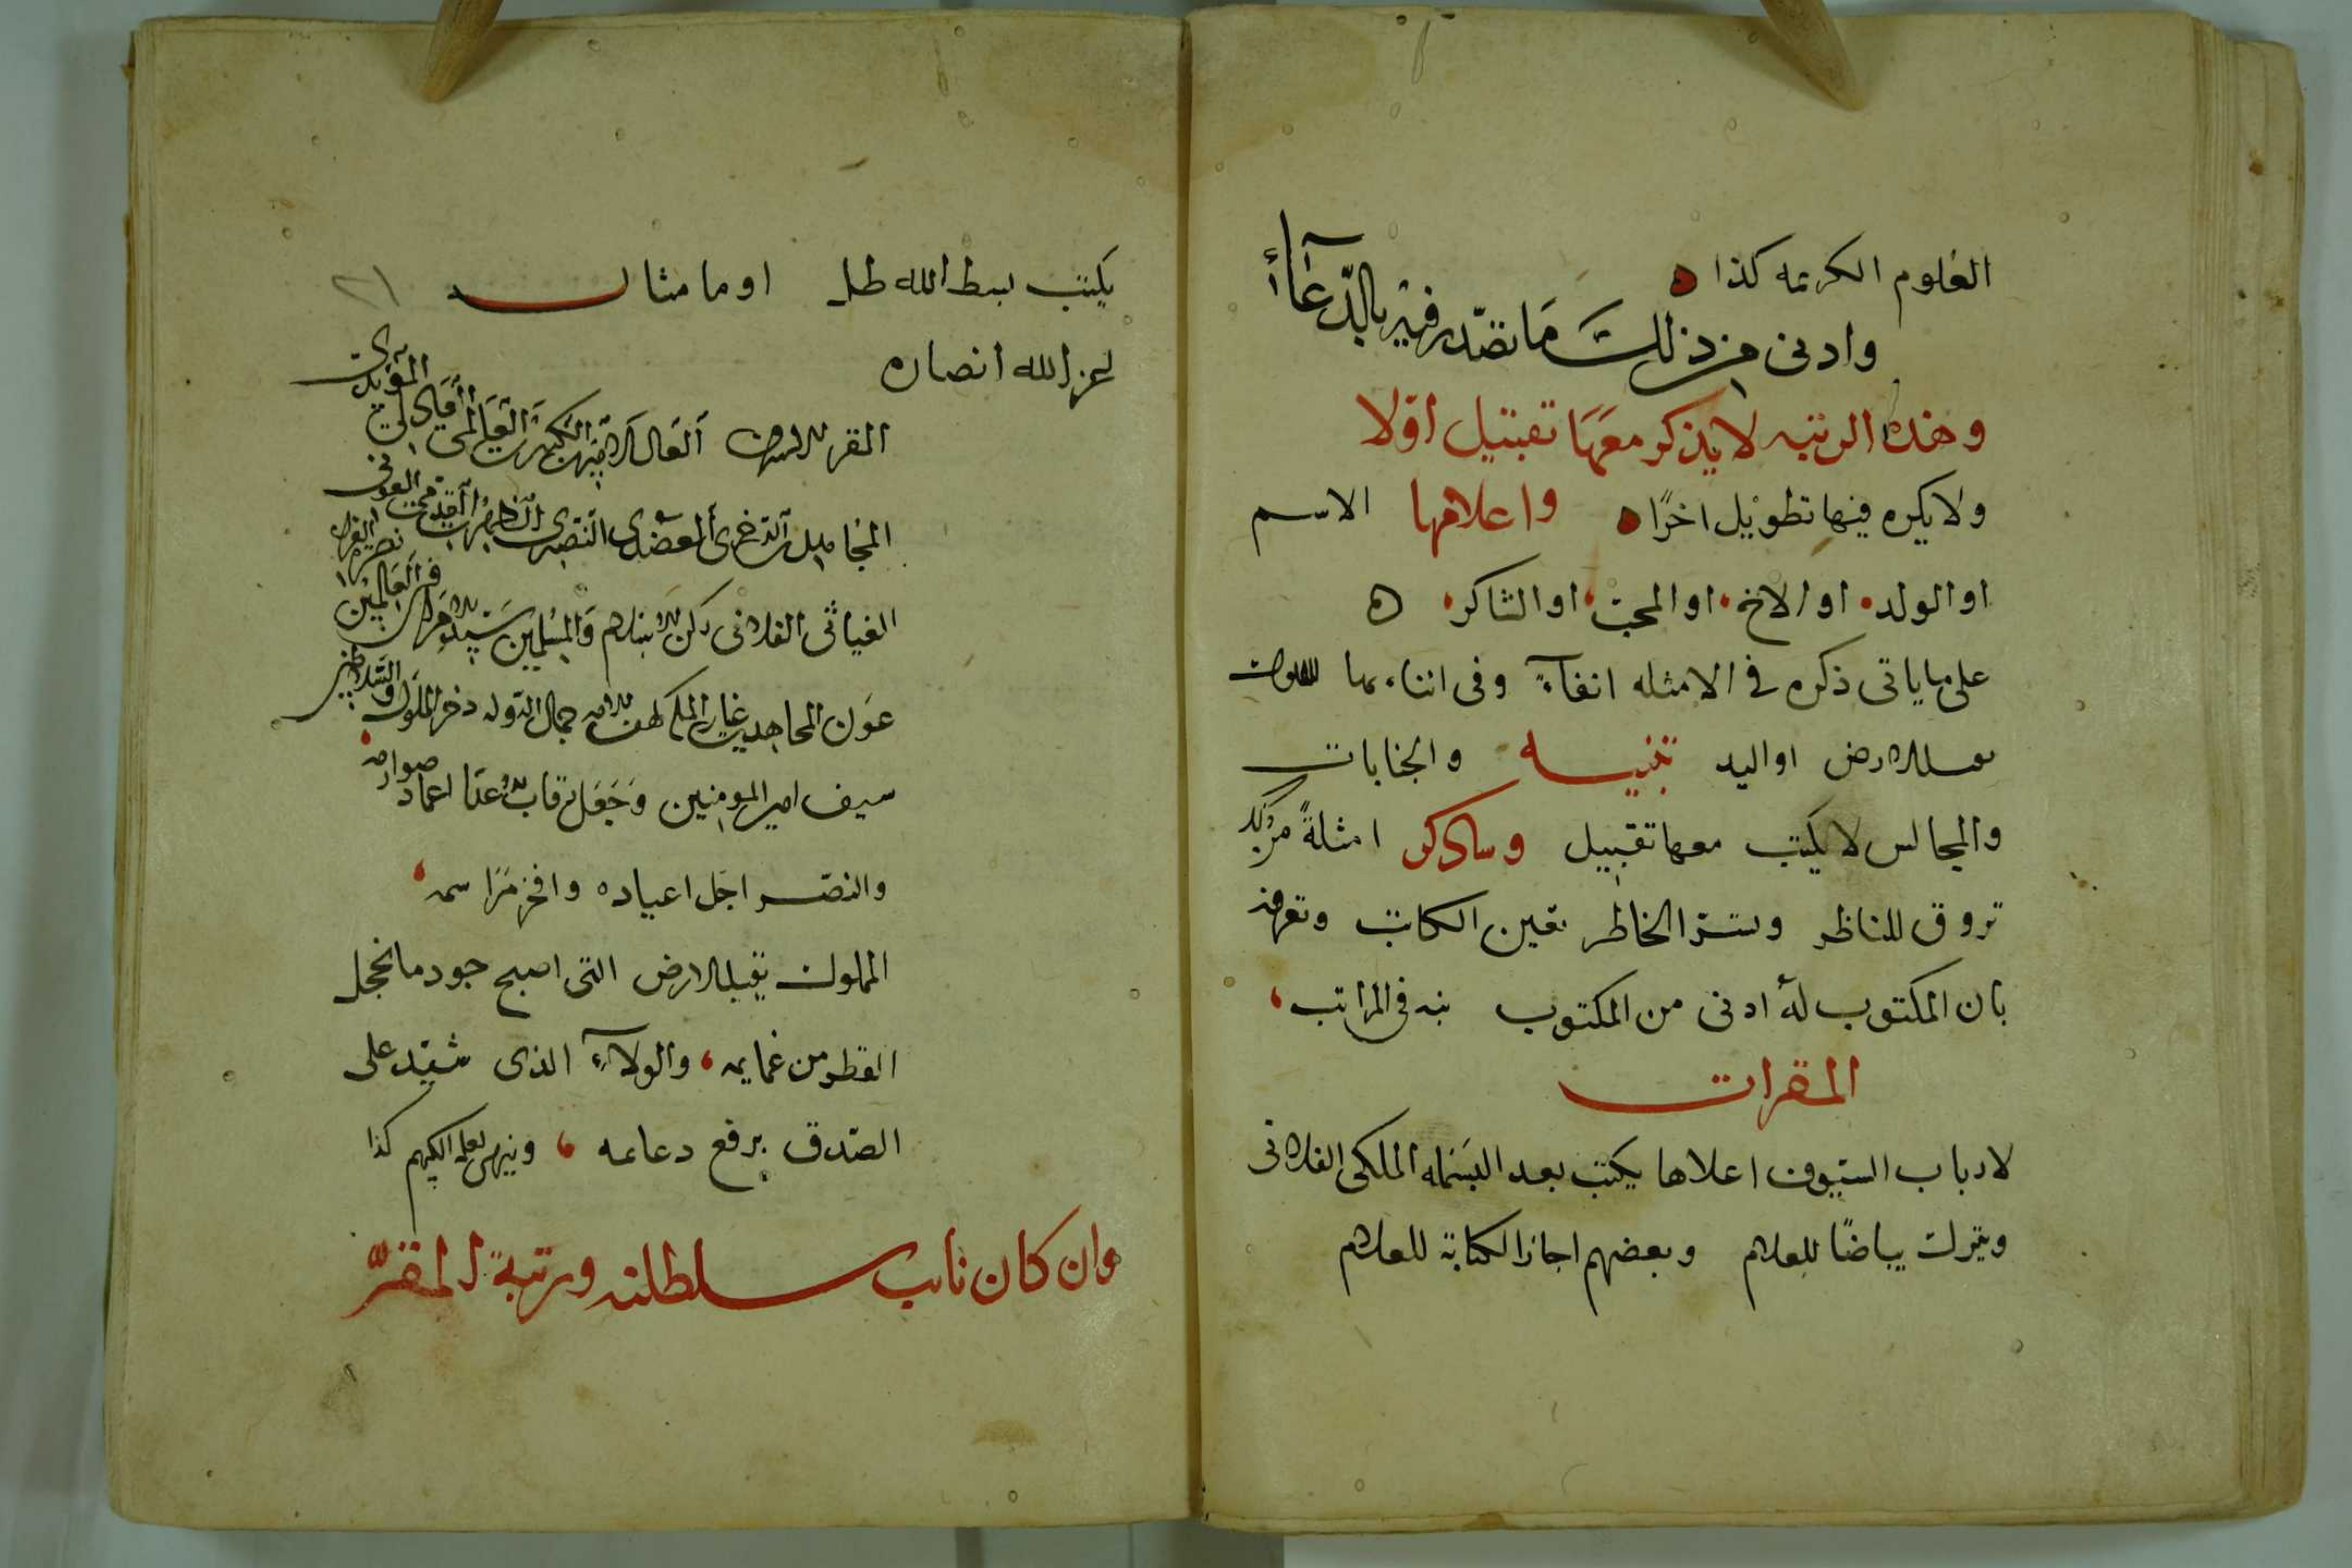 العلوم الكريمه كذا ه
وادنى من ذلك ما تصدر فيه بالدعاء
وهذه الرتبه لا يذكر معها تقبيل اولا
ولا يكره فيها تطويل اخرًا ه واعلامها الاسم
او الولد او الاخ او المحب او الشاكر ه
على ما ياتى ذكره فى الامثله انفاء وفى اثناءيها
الارض او اليد تنبيه والجنابات
والمجالس لا يكتب معها تقبيل وساذكر امثلةً
تروق للناظر وتسر الخاطر تعين الكاتب وتعرفه
بان المكتوب له ادنى من المكتوب به فى المراتب
المقرات
لارباب السيوف اعلاها يكتب بعد البسمله الملكى الفلانى
ويترك بياضًا للعلام وبعضهم اجاز الكتابة للعلام
يكتب بسط الله ظله او ما مثاله ٢١
اعز الله انصاره
المقر الاشرف العالى الاميرى الكبيرى العالمى العادلى المؤيدى
الذخرى العضدى النصيرى العونى
الغياثى الفلانى ركن الاسلام والمسلمين سيد الامرا فى العالمين نصره الغزاه
عون المجاهدين كهف الامه جمال الدوله ذخر الملوك والسلاطين
سيف امير المومنين وجعل رقاب عداه اغماد صوارمه
والنصر اجل اعياده وافخر مراسمه
المملوك يقبل الارض التى اصبح جودها يخجل
القطر من غمايمه والولاء الذى شيد على
الصدق برفع دعايمه وينهى لعلمه الكريم كذا
وان كان نايب سلطنه ورتبة المقر